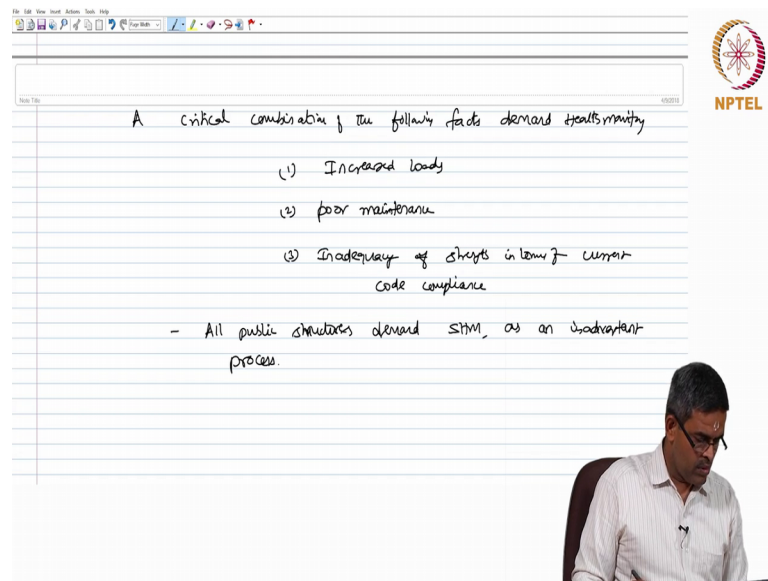 File Edit View Insert Actions Tools Help
Page Width
Note Title
4/9/2019
NPTEL
A critical combination of the following facts demand Health monitoring
(1) Increased loads
(2) poor maintenance
(3) Inadequacy of strength in terms of current
code compliance
- All public structures demand SHM, as an inadvertent
process.